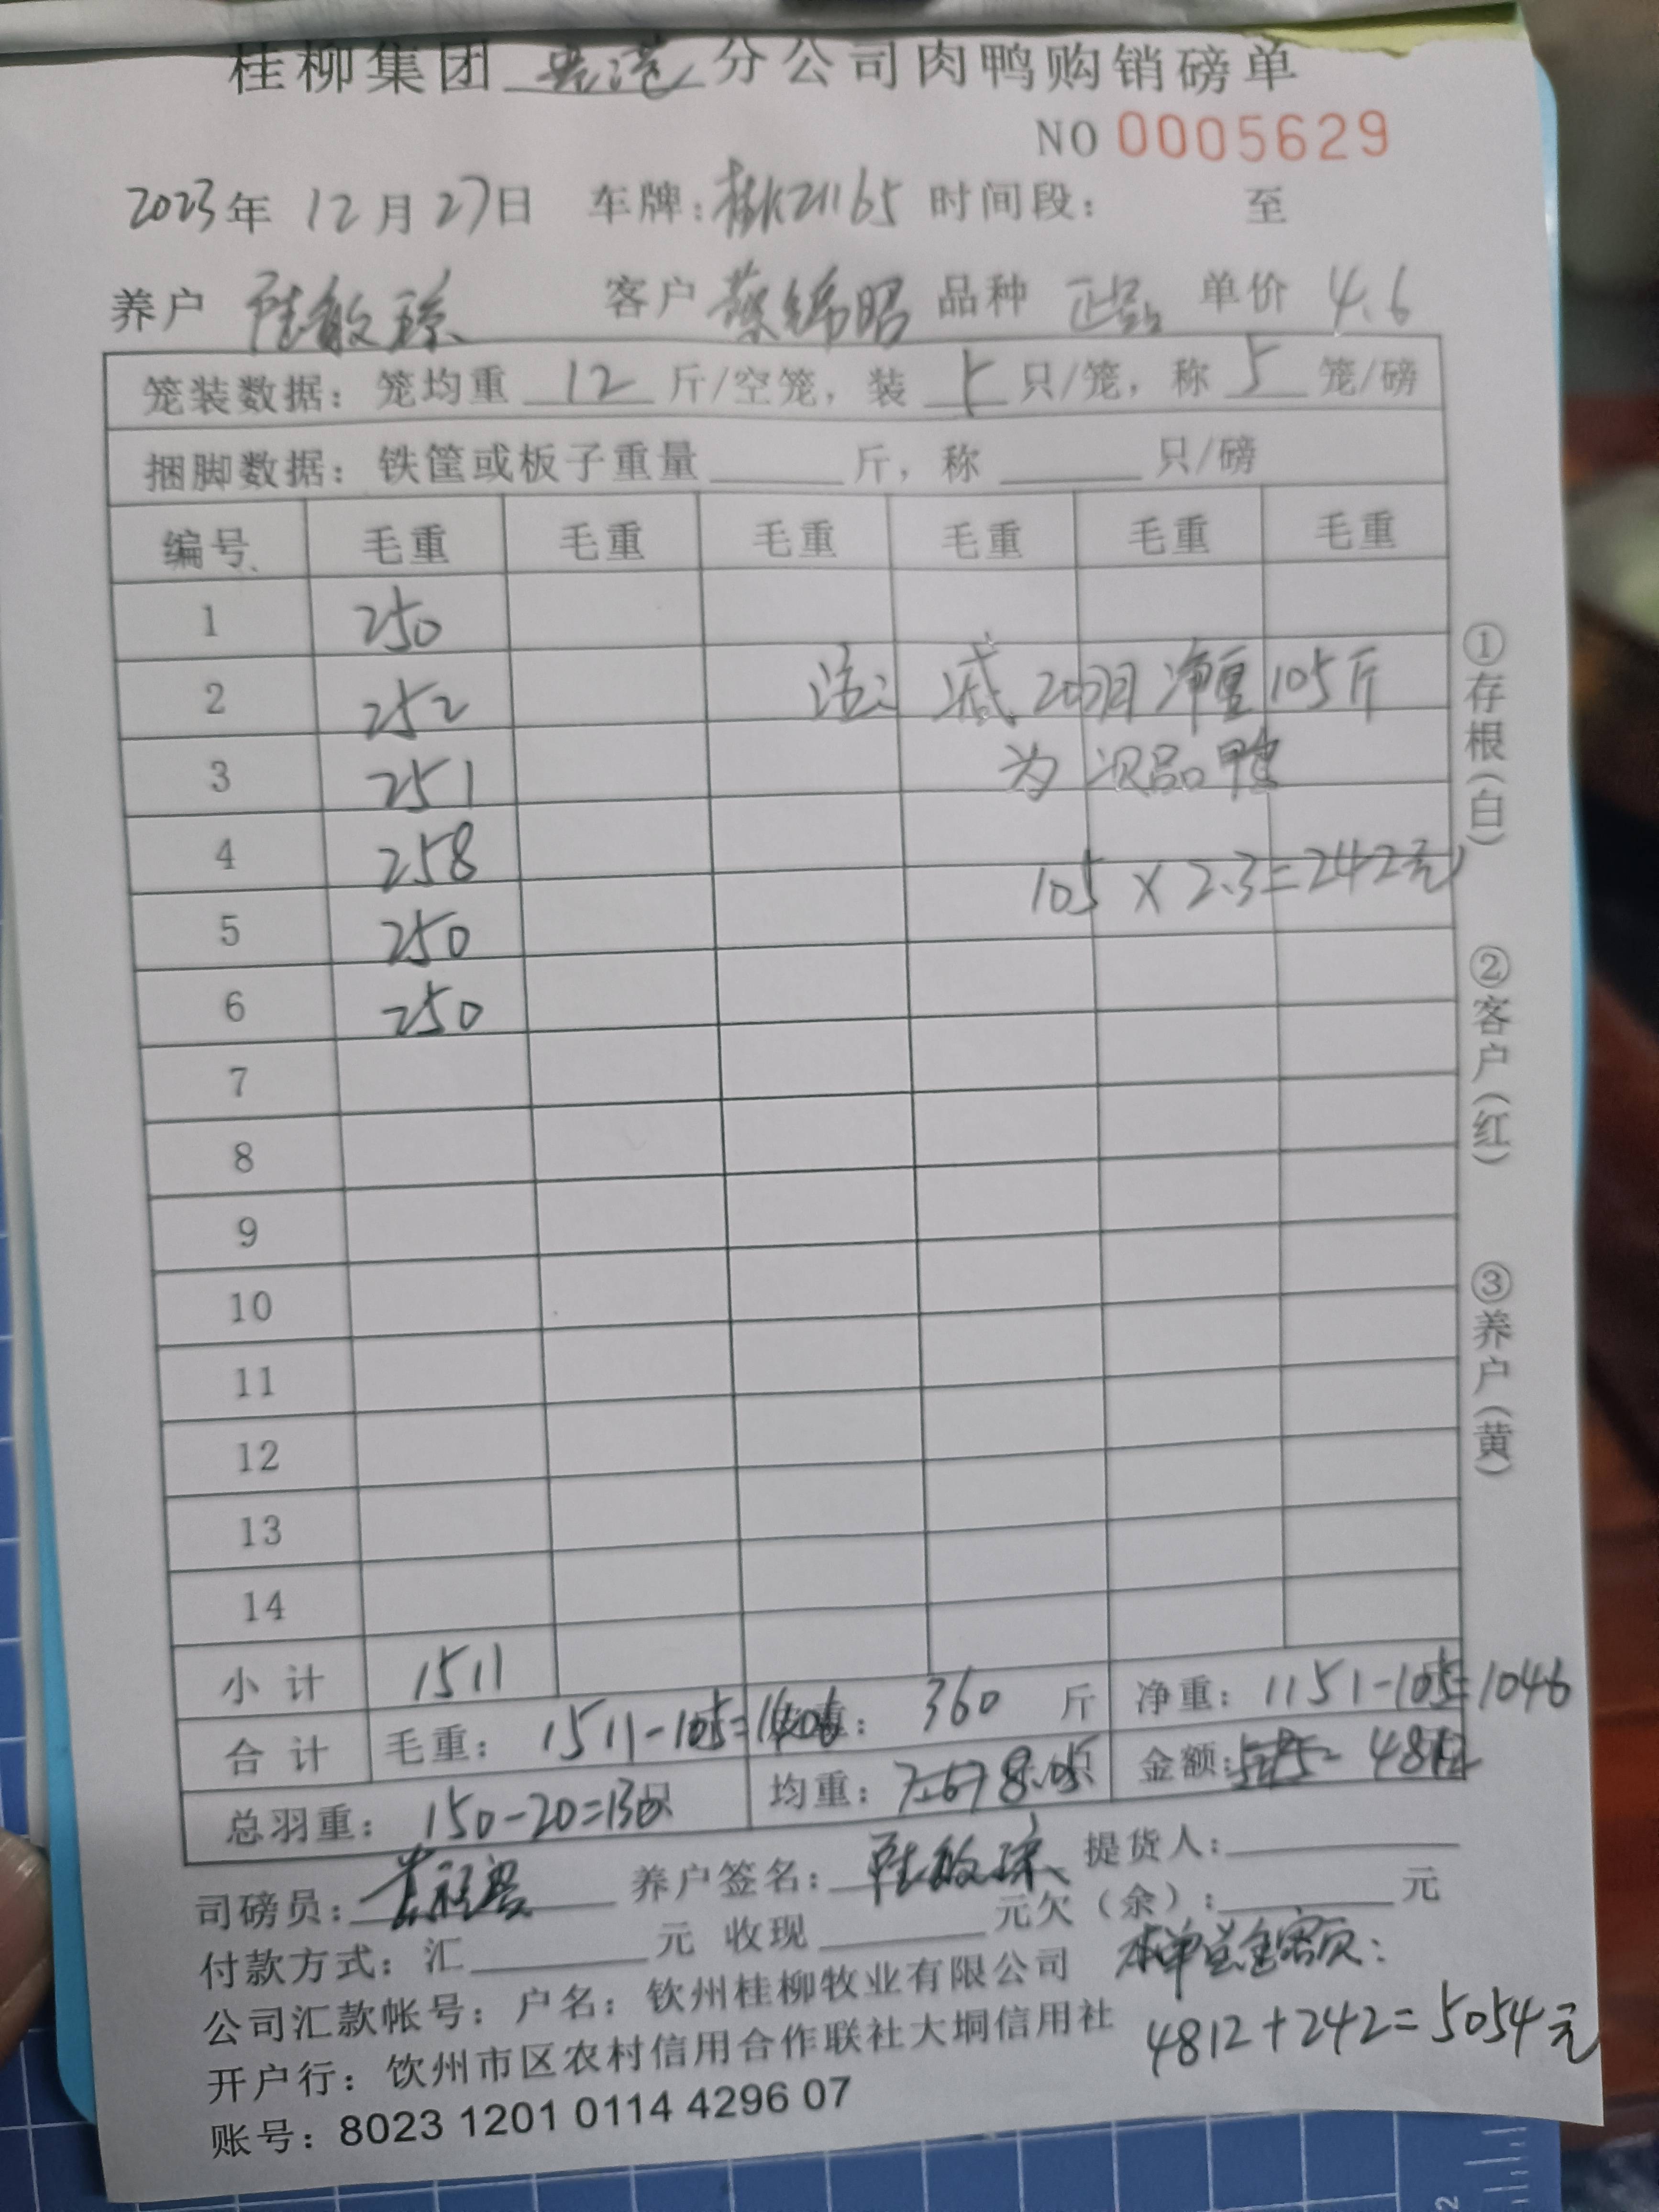 桂柳集团 贵港 分公司肉鸭购销磅单
NO 0005629
2023年 12月27日 车牌:桂K21165 时间段: 至
养户 陆敏琼 客户 蔡锦昭 品种 正品 单价 4.6
笼装数据:笼均重 12 斤/空笼,装 5 只/笼,称 5 笼/磅
捆脚数据:铁筐或板子重量 斤,称 只/磅
编号 毛重 毛重 毛重 毛重 毛重 毛重
1 250
2 252 注: 减20只 净重105斤
3 251 为次品鸭
4 258 105 × 2.3=242元
5 250
6 250
7
8
9
10
11
12
13
14
小计 1511
合计 毛重: 1511-105=1406 重: 360 斤 净重: 1151-105=1046
总羽重: 150-20=130只 均重: 7.67 8.05 金额: 4812
司磅员: 养户签名: 陆敏琼 提货人:
付款方式:汇 元 收现 元欠(余): 元
公司汇款帐号:户名:钦州桂柳牧业有限公司 本单总金额:
开户行:饮州市区农村信用合作联社大垌信用社 4812+242=5054元
账号:8023 1201 0114 4296 07
①存根(白)
②客户(红)
③养户(黄)